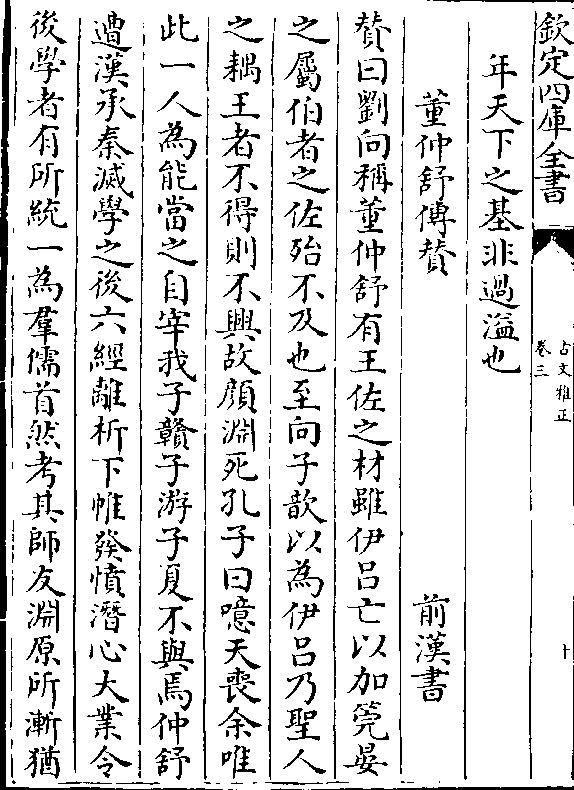 欽定四庫全書
古文雅正
卷三
十
年天下之基非過溢也
董仲舒傳贊 前漢書
贊曰劉向稱董仲舒有王佐之材雖伊呂亡以加筦晏
之屬伯者之佐殆不及也至向子歆以為伊呂乃聖人
之耦王者不得則不興故顔淵死孔子曰噫天喪余唯
此一人為能當之自宰我子贛子游子夏不與焉仲舒
遭漢承秦滅學之後六經離析下帷發憤潛心大業令
後學者有所統一為羣儒首然考其師友淵原所漸猶